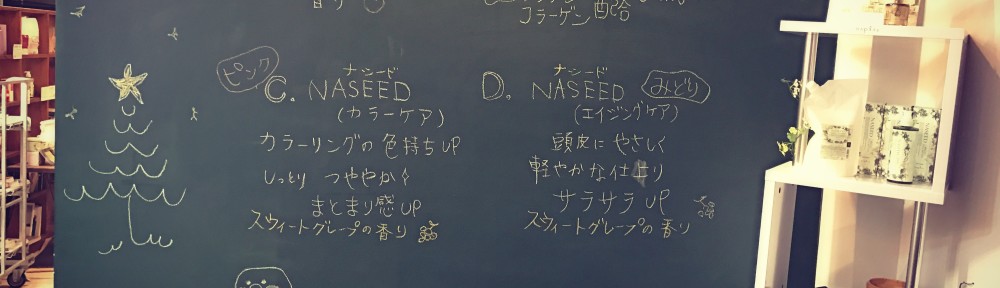 香り
コラーゲン配合
ピンク
ナシード
C. NASEED
(カラーケア)
カラーリングの色持ちUP
しっとり つややか
まとまり感UP
スウィートグレープの香り
ナシード
D. NASEED
みどり
(エイジングケア)
頭皮にやさしく
軽やかな仕上り
サラサラUP
スウィートグレープの香り